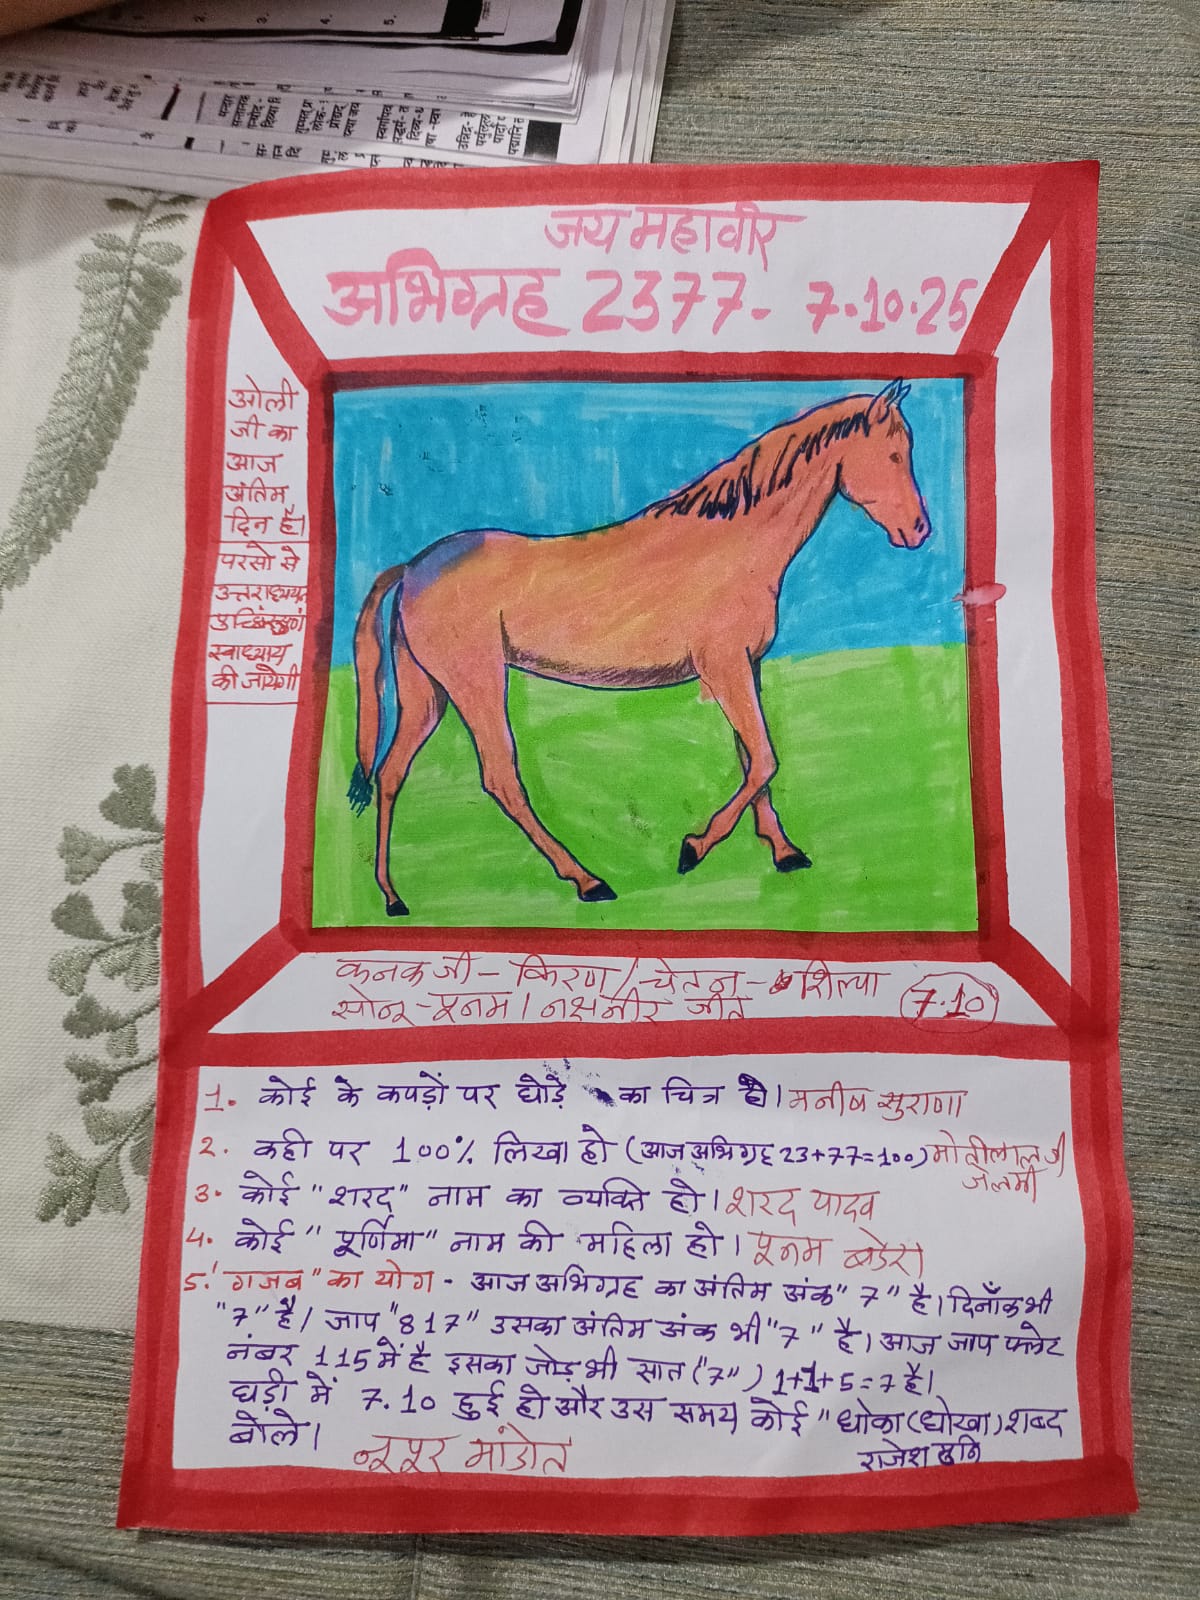 जय महावीर
अभिग्रह 2377- 7.10.25
ओली
जी का
आज
अंतिम
दिन है।
परसो से
उत्तराध्ययन
स्वाध्याय
की जायेगी
कनक जी - किरण / चेतन - शिल्पा
सोनू - पूनम। जीत
7.10
1. कोई के कपड़ों पर घोड़े का चित्र हो। मनीष सुराणा
2. कही पर 100% लिखा हो (आज अभिग्रह 23+77=100) मोतीलाल जी
3. कोई "शरद" नाम का व्यक्ति हो। शरद यादव
4. कोई "पूर्णिमा" नाम की महिला हो। पूनम
5. "गजब" का योग - आज अभिग्रह का अंतिम अंक "7" है। दिनाँक भी
"7" है। जाप "817" उसका अंतिम अंक भी "7" है। आज जाप फ्लेट
नंबर 115 में है इसका जोड़ भी सात ("7") 1+1+5=7 है।
घड़ी में 7.10 हुई हो और उस समय कोई "धोका (धोखा) शब्द
बोले।
नूपुर मांडोत
राजेश मुनि